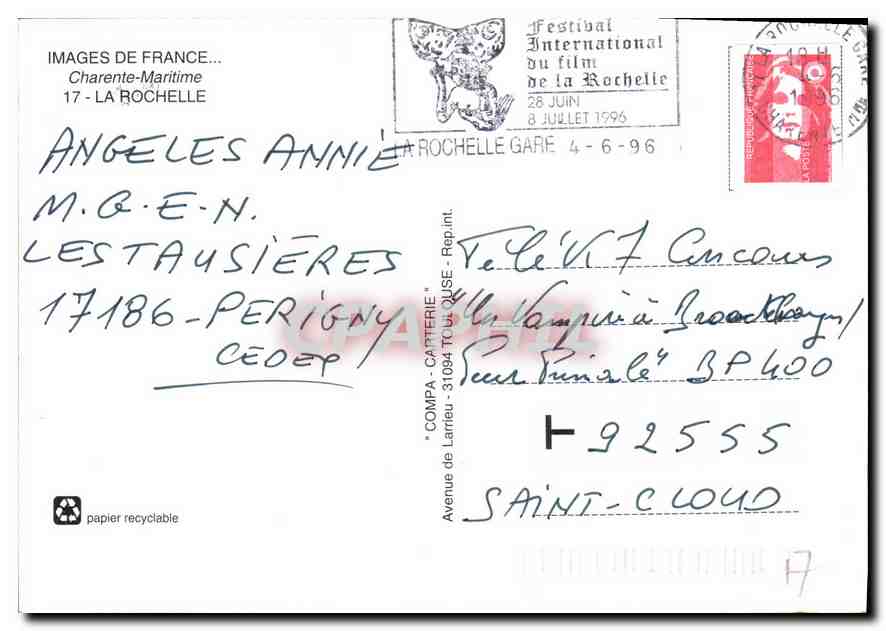 IMAGES DE FRANCE...
Charente-Maritime
17 - LA ROCHELLE
Festival
International
du film
de la Rochelle
28 JUIN
8 JUILLET 1996
LA ROCHELLE GARE 4-6-96
LA ROCHELLE GARE
12 H
4-6
1996
REPUBLIQUE FRANCAISE
LA POSTE
ANGELES ANNIE
M.G.E.N.
LES TAUSIÈRES
17186-PERIGNY
CEDEX
" COMPA - CARTERIE "
Avenue de Larrieu - 31094 TOULOUSE - Rep.int.
Télé K7 Concours
"Un Vampire à Brooklyn/
Peur Primale" BP 400
T 92555
SAINT-CLOUD
papier recyclable
CPAPHIL
17